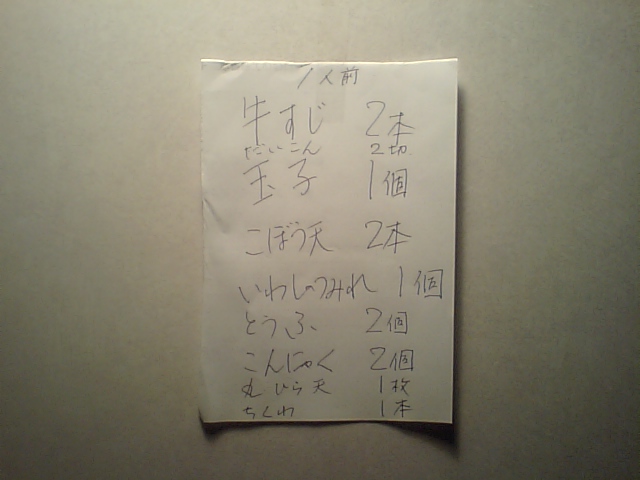 1人前
牛すじ 2本
だいこん 2切
玉子 1個
ごぼう天 2本
いわしのつみれ 1個
とうふ 2個
こんにゃく 2個
丸ひら天 1枚
ちくわ 1本